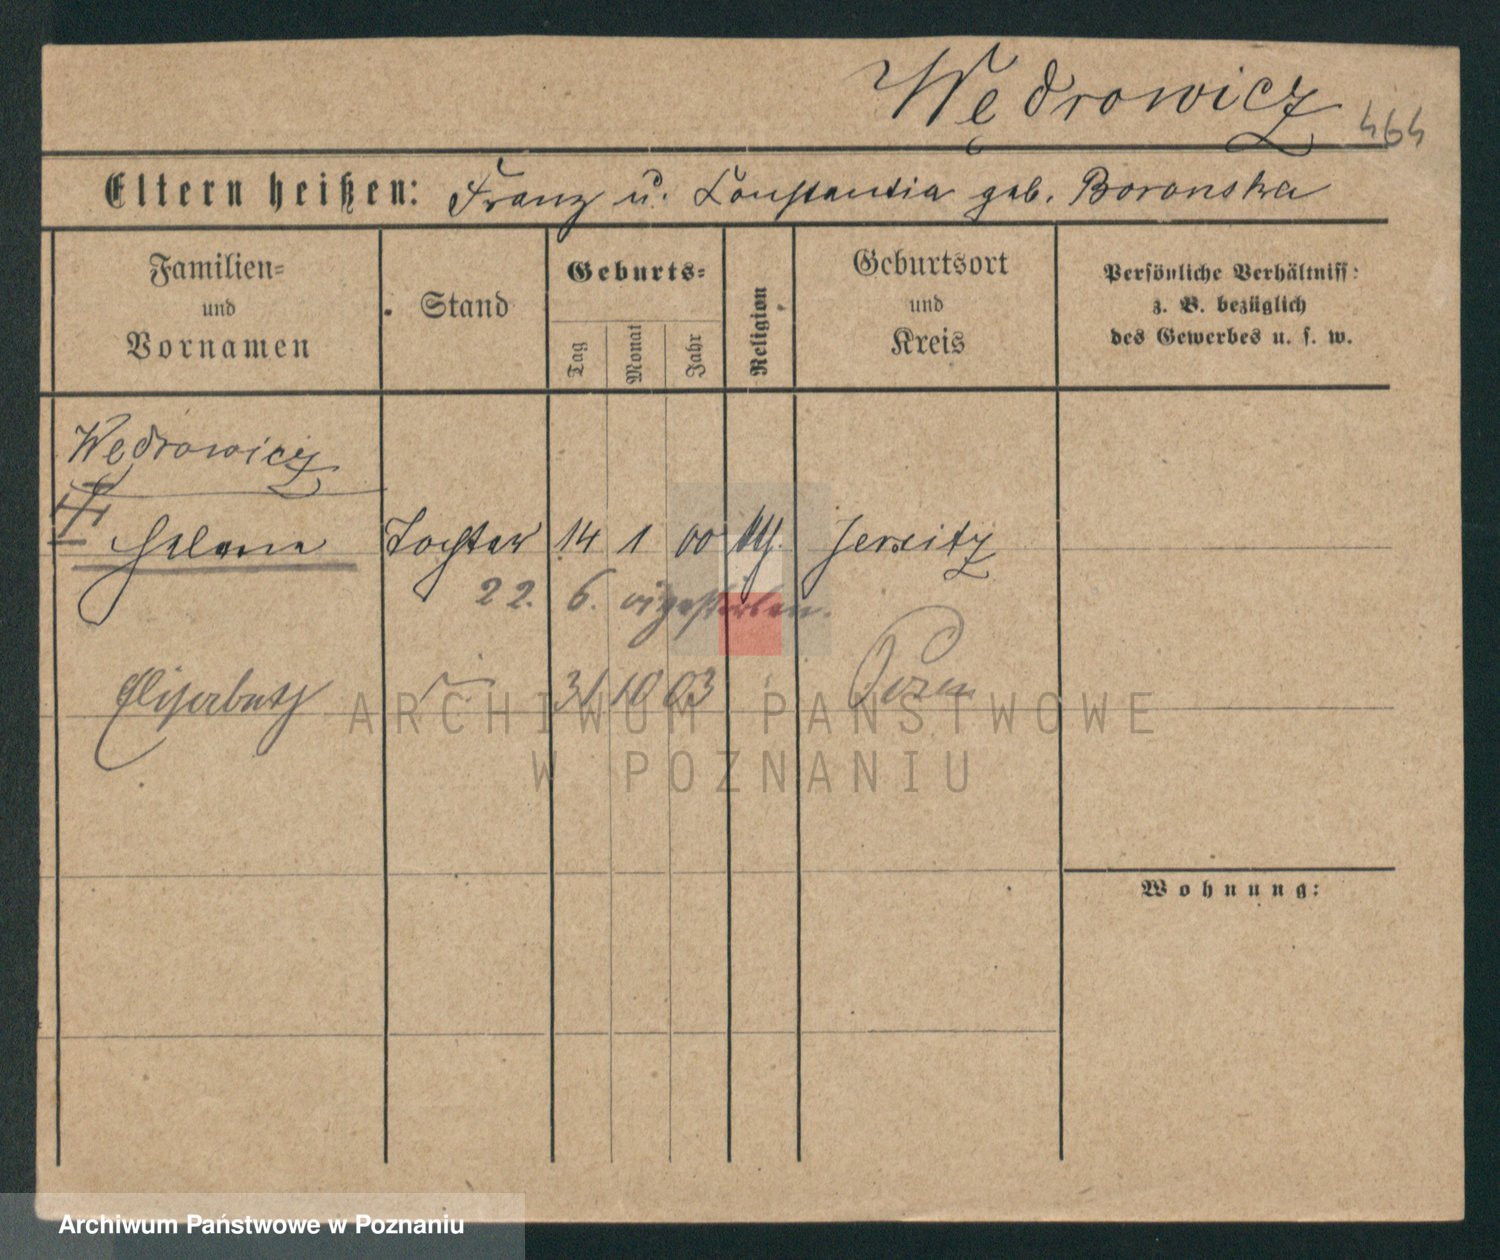 Wędrowicz
464
Eltern heißen: Franz u. Constantia geb. Boronska
Familien=
und
Vornamen
Stand
Geburts=
Tag
Monat
Jahr
Religion
Geburtsort
und
Kreis
Persönliche Verhältniss:
z. B. bezüglich
des Gewerbes u. s. w.
Wędrowicz
Helene Tochter 14 1 00 kth. Jersitz
22. 6. gestorben.
Elisabeth 31 10 03 Posen
ARCHIWUM PAŃSTWOWE
W POZNANIU
Wohnung:
Archiwum Państwowe w Poznaniu